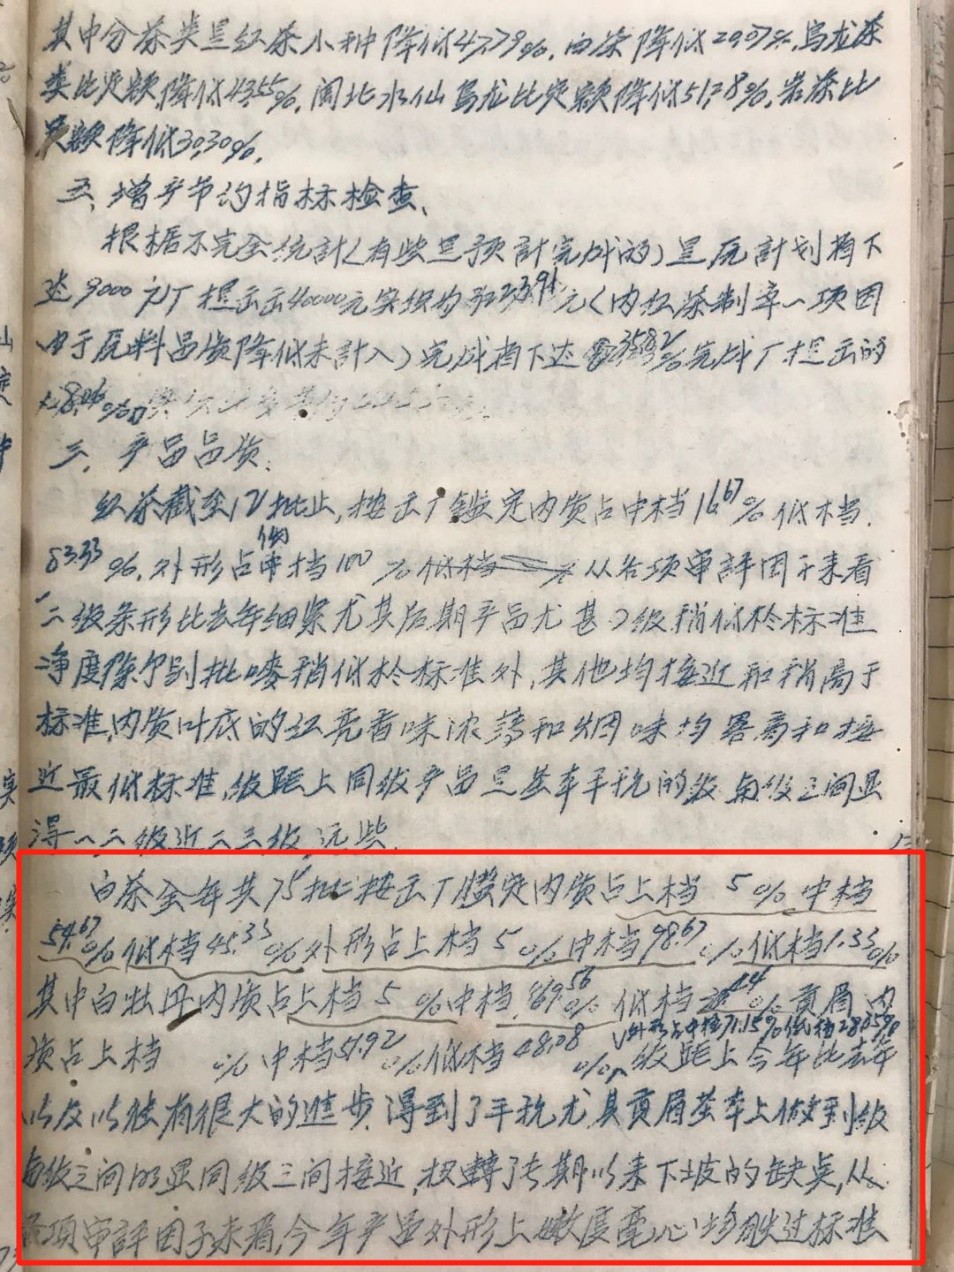 其中分茶类是红茶小种降低47.79%,白茶降低29.07%,乌龙茶
类比定额降低43.55%,闽北水仙乌龙比定额降低51.78%,岩茶比
定额降低30.30%。
五、增产节约指标检查、
根据不完全统计(有些是预计完成的)是原计划指下
达9000元厂提出40000元实绩为 元(内红茶制率一项因
由于原料品质降低未计入)完成指下达 %完成厂提出的
%
三、产品品质:
红茶截至12批止,按云厂鑑定内质占中档16.67%低档
83.33%,外形占低档100%低档 从各项审评因子来看
一二级条形比去年细紧尤其后期产品尤甚3级稍低於标准
净度除个别批唛稍低於标准外,其他均接近和稍高于
标准,内质叶底的红亮香味浓薄和烟味均畧高和接
近最低标准,级距上同级产品是基本平稳的级与级之间显
得一二级近二三级远些。
白茶全年共75批按云厂鑑定内质占上档5%中档
54.67%低档45.33%外形占上档5%中档98.67%低档1.33%
其中白牡丹内质占上档5%中档 69.56%低档 %贡眉内
V外形占中档71.15%低档28.85%
质占上档 %中档51.92%低档48.08%。级距上今年比去年
以及以往有很大的进步,得到了平稳尤其贡眉基本上做到级
与级之间明显同级之间接近,扭转了长期以来下坡的缺点,从
各项审评因子来看,今年产品外形上嫩度毫心均胜过标准